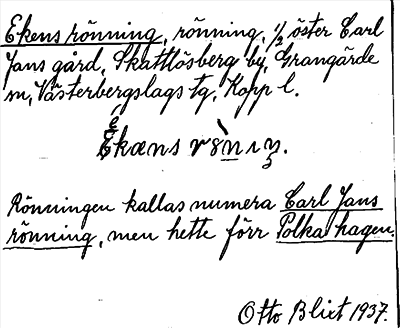 Ekens rönning, rönning, 1/2 öster Carl
Jans gård, Skattlösberg by, Grangärde
sn, Västerbergslags tg, Kopp l.
Ėkæns rȣ̀nıŋ.
Rönningen kallas numera Carl Jans
rönning, men hette förr Polka hagen.
Otto Blixt 1937.